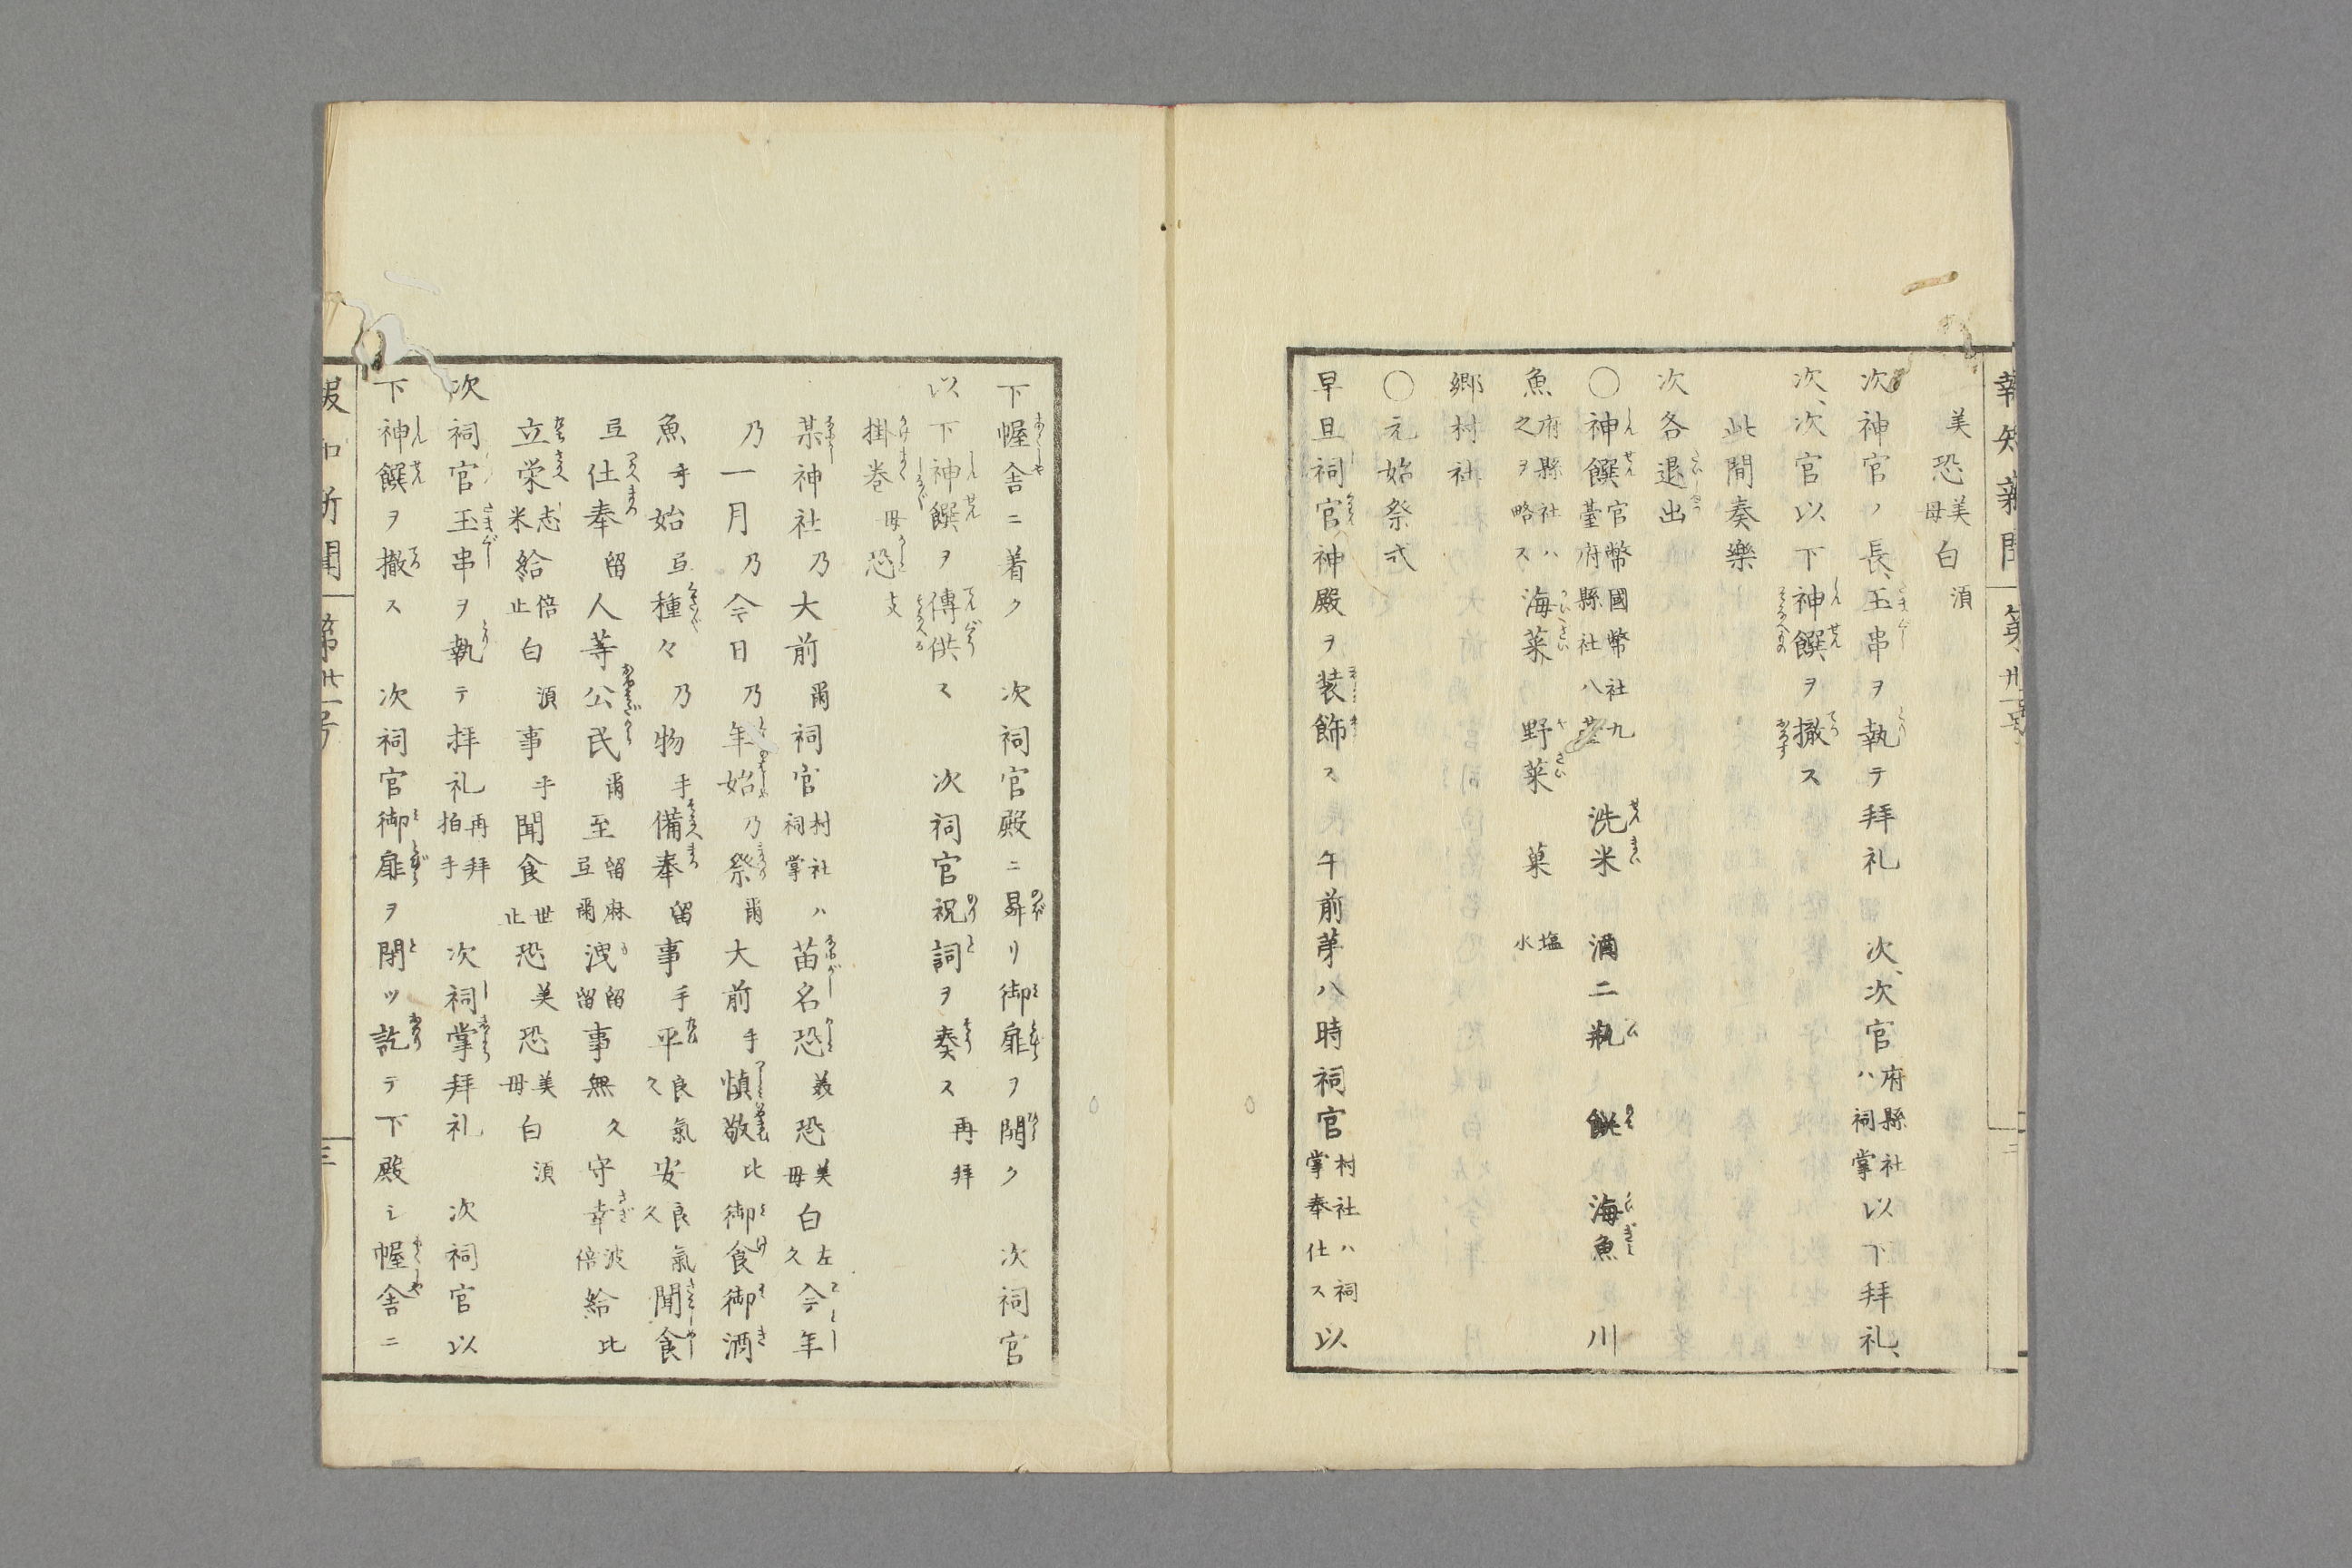 報知新聞 第卅一号
美恐美母白須
次神官ノ長、玉串ヲ執テ拝礼 次、次官府縣社ハ祠掌以下拝礼、
次、次官以下神饌ヲ撤ス
此間奏樂
次各退出
〇神饌官幣國幣社九臺府縣社八臺 洗米 酒二瓶 餅 海魚 川
魚府縣社ハ之ヲ略ス海菜 野菜 菓 塩水
郷村社
〇元始祭式
早旦祠官神殿ヲ装飾ス 午前第八時祠官村社ハ祠掌奉仕ス以
下幄舎ニ着ク 次祠官殿ニ昇リ御扉ヲ開ク 次祠官
以下神饌ヲ傳供ス 次祠官祝詞ヲ奏ス再拝
掛巻母恐支
某神社乃大前爾祠官村社ハ祠掌苗名恐美恐美母白左久今年
乃一月乃今日乃年始乃祭爾大前乎慎敬比御食御酒
魚乎始弖種々乃物乎備奉留事乎平良氣久安良氣久聞食
弖仕奉留人等公民爾至留麻弖爾洩留留事無久守幸波倍給比
立栄志米給倍止白須事乎聞食世止恐美恐美母白須
次祠官玉串ヲ執テ拝礼再拝拍手 次祠掌拝礼 次祠官以
下神饌ヲ撤ス 次祠官御扉ヲ閉ツ訖テ下殿シ幄舎ニ
報知新聞 第卅一号 三